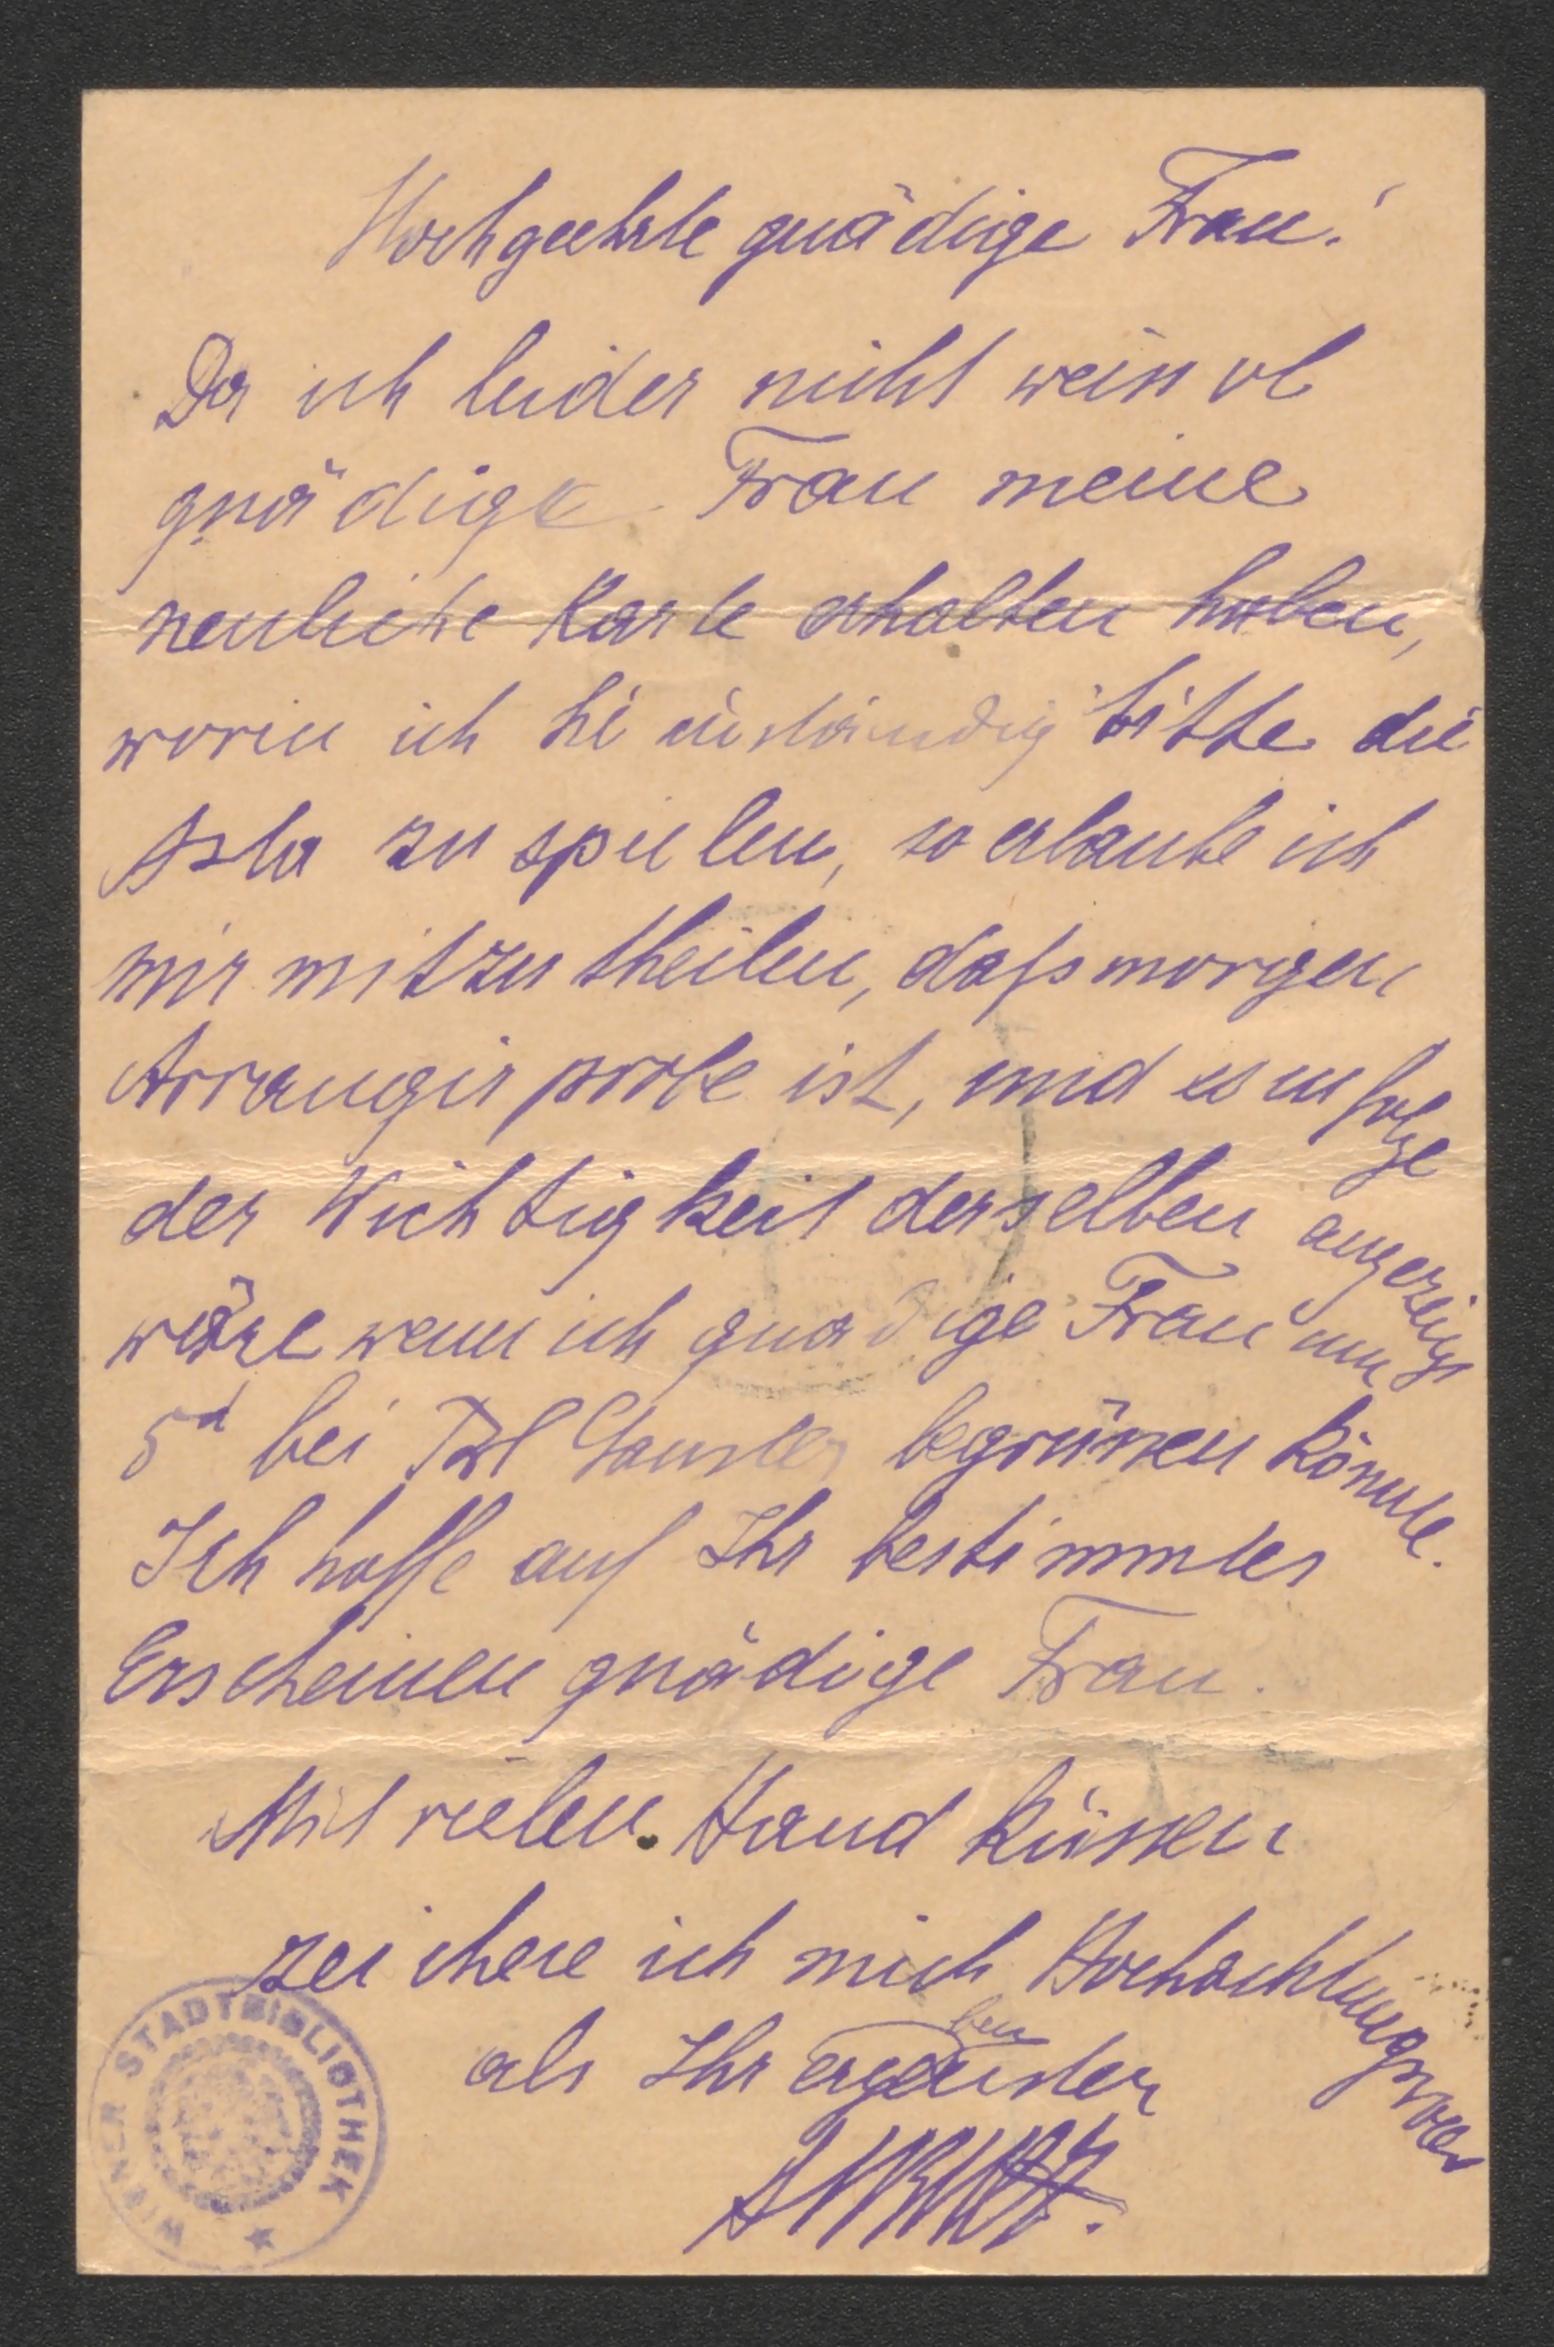 Hochgeehrte gnädige Frau!
Da ich leider nicht weiss ob
gnädige Frau meine
neuliche Karte erhalten haben,
worin ich Sie inständig bitte die
Asta zu spielen, so erlaube ich
mir mitzutheilen, dafs morgen
Arrangirprobe ist, und es infolge
der Wichtigkeit derselben angezeigt
wäre wenn ich gnädige Frau um
5h bei begrüssen könnte.
Ich hoffe auf Ihr bestimmtes
Erscheinen gnädige Frau.
Mit vielen Hand küssen
zeichene ich mich Hochachtungsvoll
als Ihr ergebenster
WIENER STADTBIBLIOTHEK